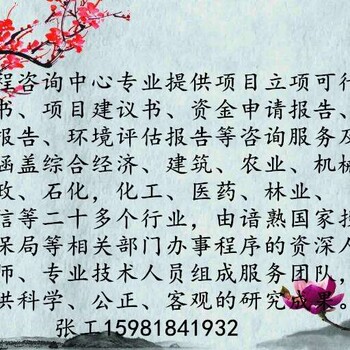 程咨询中心专业提供项目立项可行
书、项目建议书、资金申请报告、
报告、环境评估报告等咨询服务及
涵盖综合经济、建筑、农业、机械
政、石化，化工、医药、林业、
信等二十多个行业，由谙熟国家投
保局等相关部门办事程序的资深人
师、专业技术人员组成服务团队，
供科学、公正、客观的研究成果。
张工15981841932